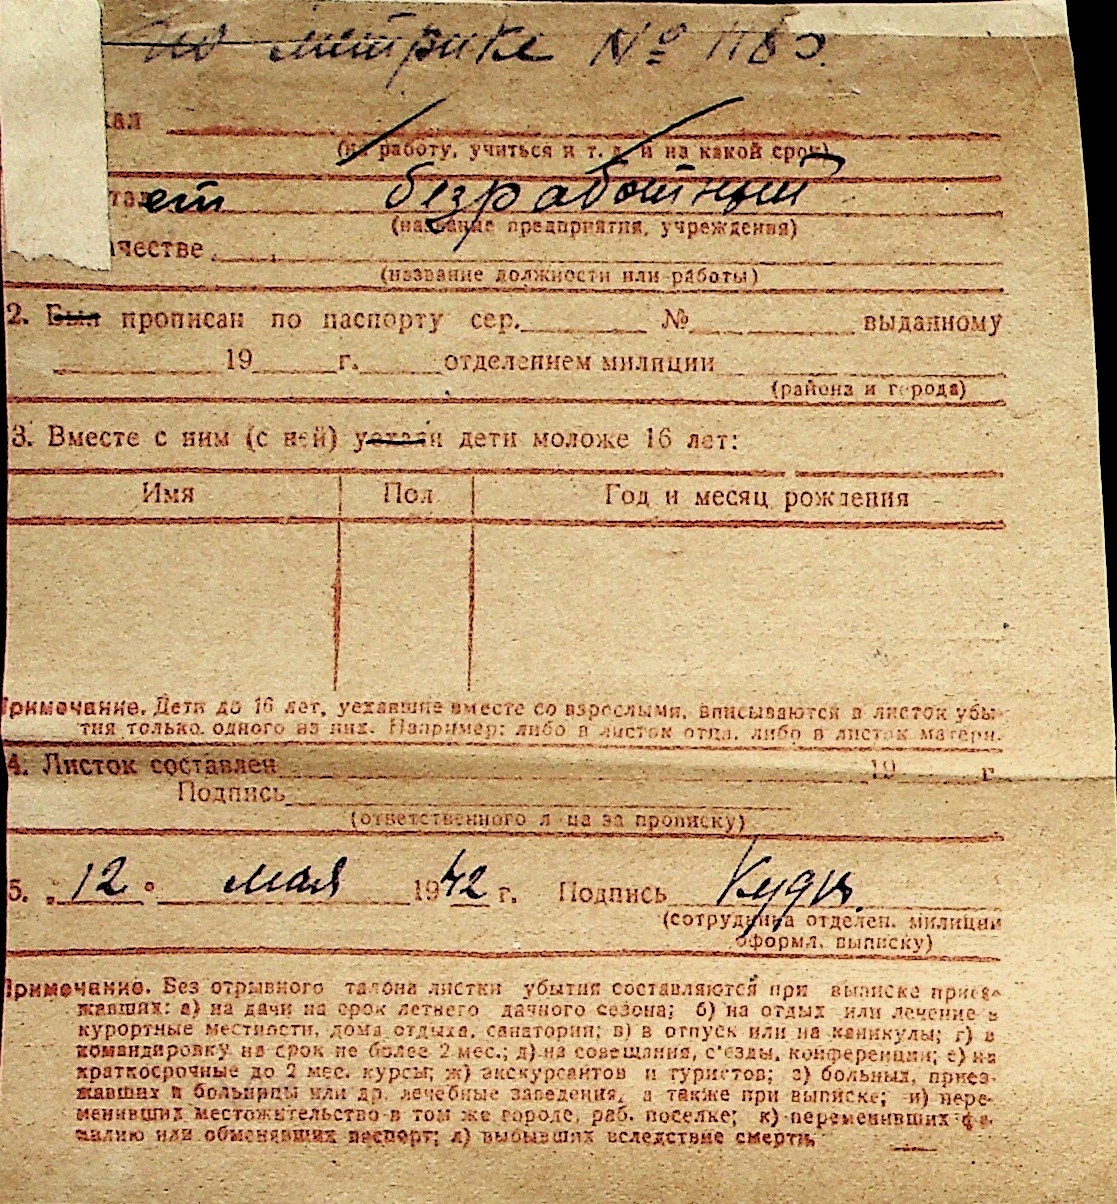 по метрике №
ая
(на работу, учиться и т. д. и на какой срок)
тает безработный
(название предприятия, учреждения)
ачестве
(название должности или работы)
2. Был прописан по паспорту сер. № выданному
19 г. отделением милиции
(района и города)
3. Вместе с ним (с ней) уехали дети моложе 16 лет:
Имя Пол Год и месяц рождения
Примечание. Дети до 16 лет, уехавшие вместе со взрослыми, вписываются в листок убы-
тия только одного из них. Например: либо в листок отца, либо в листок матери.
4. Листок составлен 19 г
Подпись
(ответственного лица за прописку)
5. "12" мая 1942 г. Подпись
(сотрудника отделен. милиции
оформл. выписку)
Примечание. Без отрывного талона листки убытия составляются при выписке приез-
жавших: а) на дачи на срок летнего дачного сезона; б) на отдых или лечение в
курортные местности, дома отдыха, санатории; в) в отпуск или на каникулы; г) в
командировку на срок не более 2 мес.; д) на совещания, с'езды, конференции; е) на
краткосрочные до 2 мес. курсы; ж) экскурсантов и туристов; з) больных, приез-
жавших в больницы или др. лечебные заведения, а также при выписке; и) пере-
менивших местожительство в том же городе, раб. поселке; к) переменивших фа-
милию или обменявших паспорт; л) выбывших вследствие смерти.